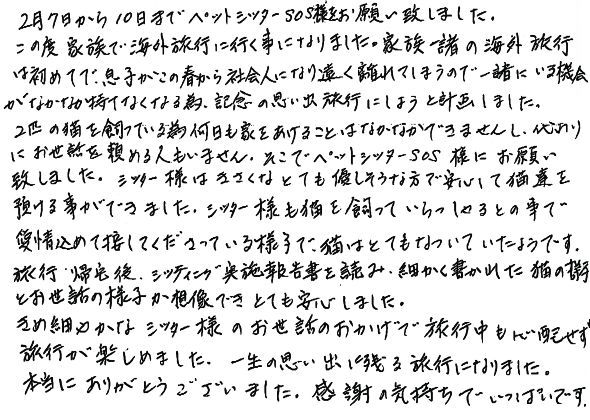 2月7日から10日までペットシッターSOS様をお願い致しました。
この度家族で海外旅行に行く事になりました。家族一諸の海外旅行
は初めてで、息子がこの春から社会人になり遠く離れてしまうので一諸にいる機会
がなかなか持てなくなる為、記念の思い出旅行にしようと計画しました。
2匹の猫を飼っている為何日も家をあけることはなかなかできませんし、代わり
にお世話を頼める人もいません。そこでペットシッターSOS様にお願い
致しました。シッター様はきさくなとても優しそうな方で安心して猫達を
預ける事ができました。シッター様も猫を飼っていらっしゃるとの事で
愛情込めて接してくださっている様子で、猫はとてもなついていたようです。
旅行帰宅後、シッティング実施報告書を読み、細かく書かれた猫の様子
とお世話の様子が想像できとても安心しました。
きめ細やかなシッター様のお世話のおかげで旅行中も心配せず
旅行が楽しめました。一生の思い出に残る旅行になりました。
本当にありがとうございました。感謝の気持ちでいっぱいです。